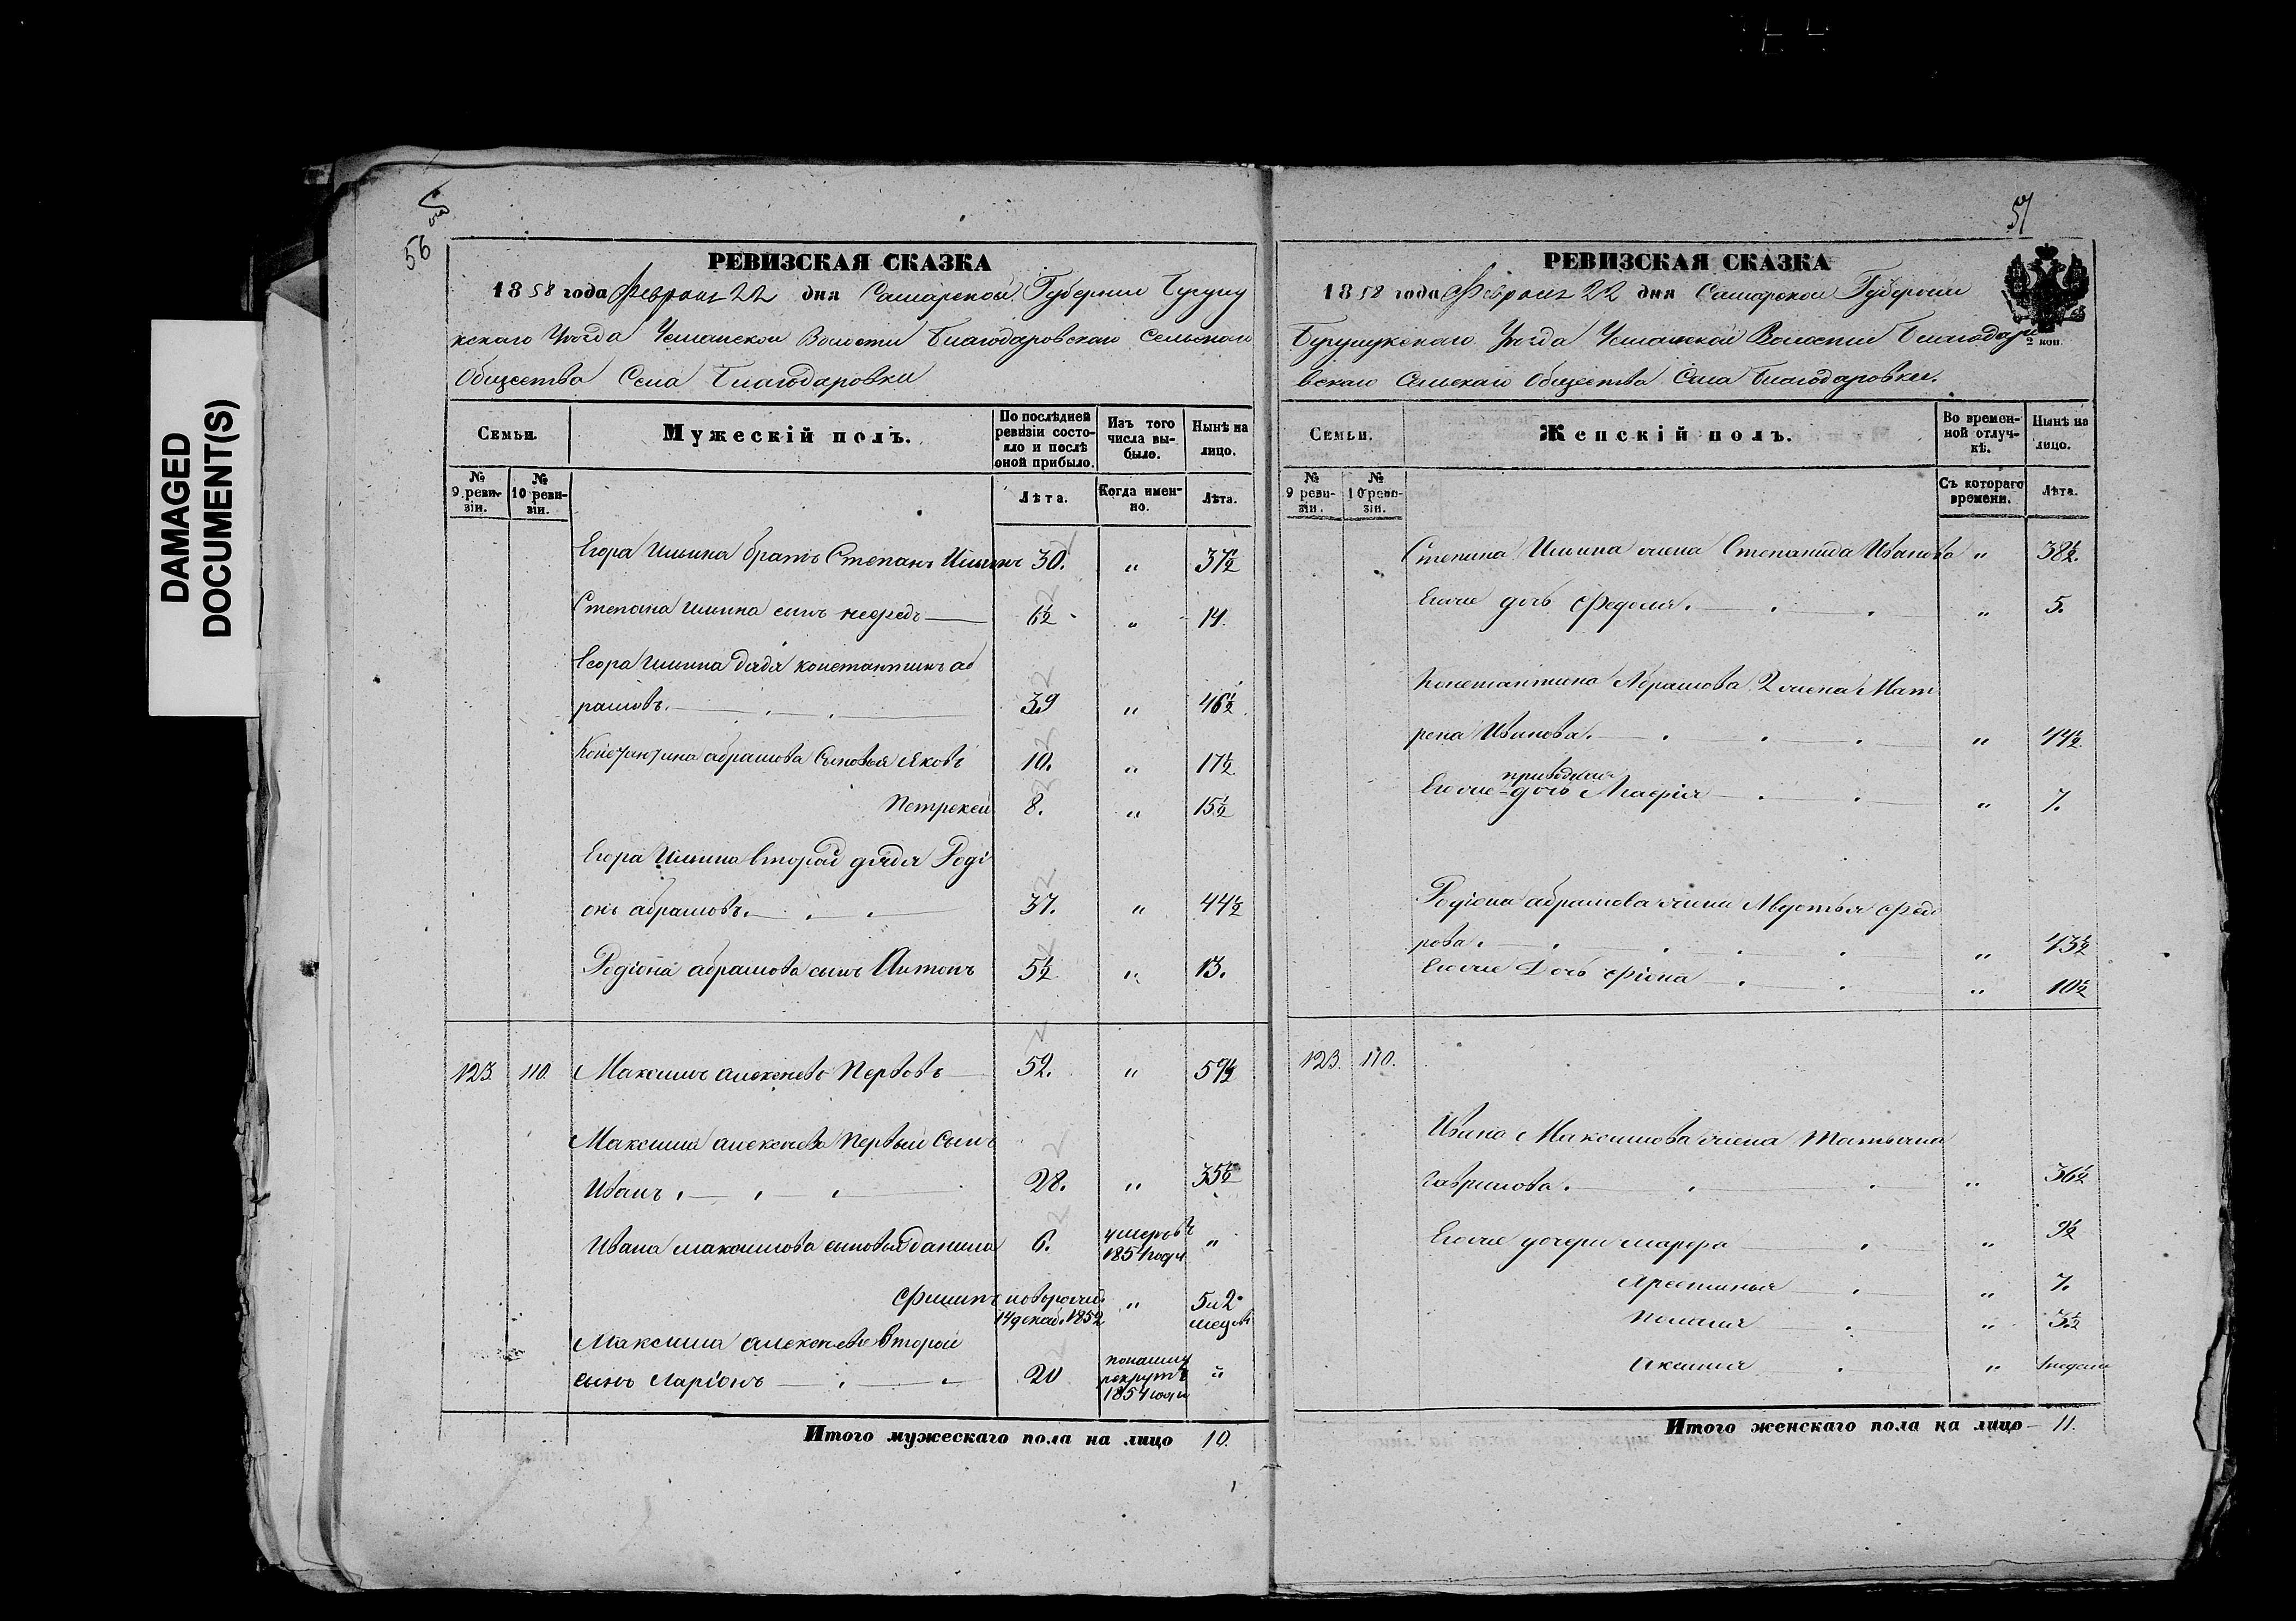 DAMAGED
DOCUMENT(S)
56
РЕВИЗСКАЯ СКАЗКА
1858 года Февраля 22 дня Самарской Губернии Бугуру
Уѣзда Волости Благодаровскаго Сельскаго
Общества Села Благодаровки
Семьи.
Мужескій полъ.
По послѣдней ревизіи состояло и послѣ оной прибыло.
Изъ того числа выбыло.
Нынѣ на лицо.
№ 9 ревизіи.
№ 10 ревизіи.
Лѣта.
Когда именно.
Лѣта.
Егора Ильина братъ Степанъ Ильинъ 30. " 37½
Степана Ильина сынъ 6½ " 14.
Егора Ильина дядя Константинъ аб
рамовъ. 39 " 46½
Константина абрамова сыновья Яковъ 10. " 17½
Петръ 8. " 15½
Егора Ильина второй дядя Роді
онъ абрамовъ. 37. " 44½
Родіона абрамова сынъ Антонъ 5½ " 13.
123. 110. Максимъ алексѣевъ Первовъ 52. " 59½
Максима алексѣева первый сынъ
Иванъ 28. " 35½
Ивана максимова сыновья данила 6. умеръ въ 1854 году "
Филипъ новорожд. 14 декаб. 1852 " 5 и 2 мец.
Максима алексѣева второй
сынъ Ларіонъ 20 рекрутъ 1854 года "
Итого мужескаго пола на лицо 10.
57
РЕВИЗСКАЯ СКАЗКА
1858 года Февраля 22 дня Самарской Губернии
Уѣзда Волости Благодаро
вскаго Сельскаго Общества Села Благодаровки.
2 коп
Семьи.
Женскій полъ.
Во временной отлучкѣ.
Нынѣ на лицо.
№ 9 ревизіи.
№ 10 ревизіи.
Съ котораго времени.
Лѣта.
Степана Ильина жена Степанида Иванова " 38½.
Егоже дочь Федосья. " 5.
Константина Абрамова 2 жена Мат
рена Иванова. " 44½
приводная
Егоже дочь Марфа " 7.
Родіона абрамова жена Авдотья федо
рова. " 43½
Егоже дочь " 10½
123. 110.
Ивана Максимова жена Татьяна
гаврилова. " 36½
Егоже дочери марфа " 9½
Арестинья " 7.
Пелагея " 3½
Аксинья " 1 недели
Итого женскаго пола на лицо 11.